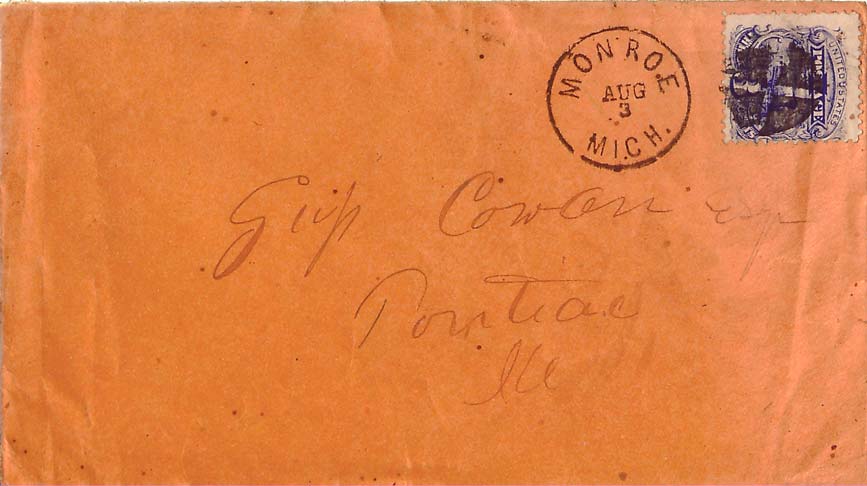 MONROE
AUG
3
MICH.
UNITED STATES
POSTAGE
Cowan Esq
Pontiac